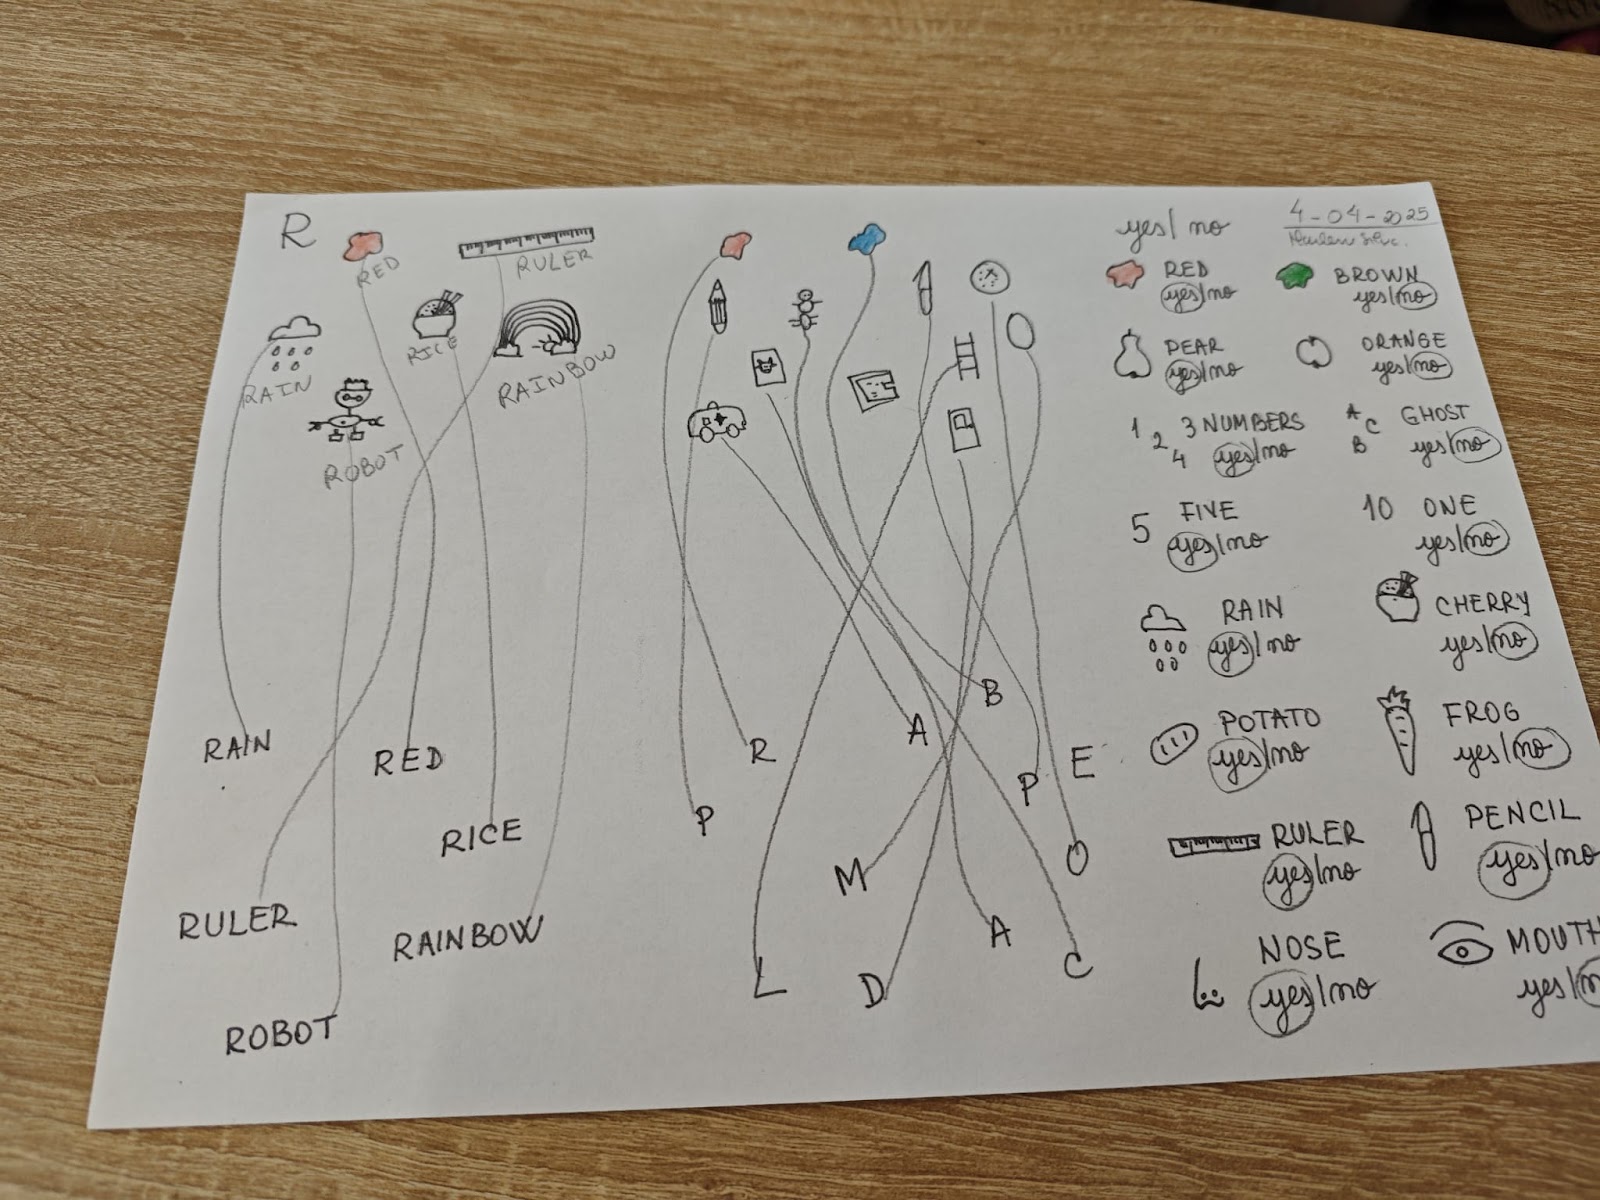 R
RED
RULER
RICE
RAIN
RAINBOW
ROBOT
RAIN
RED
RICE
RULER
RAINBOW
ROBOT
B
A
R
E
P
P
O
M
A
L
D
C
yes/no
4-04-2025
RED
yes/no
BROWN
yes/no
PEAR
yes/no
ORANGE
yes/no
1 2 3 4 NUMBERS
yes/no
A B C GHOST
yes/no
5 FIVE
yes/no
10 ONE
yes/no
RAIN
yes/no
CHERRY
yes/no
POTATO
yes/no
FROG
yes/no
RULER
yes/no
PENCIL
yes/no
NOSE
yes/no
MOUTH
yes/n